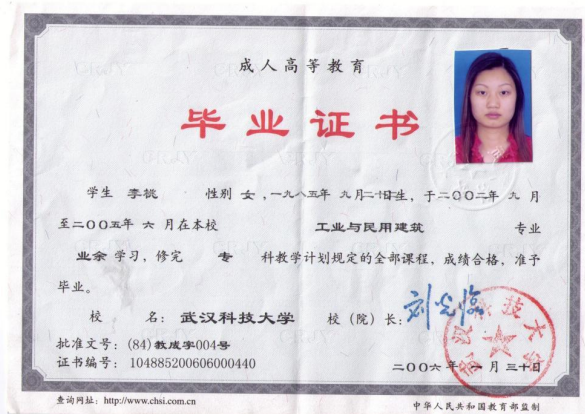 成人高等教育
毕业证书
学生 李桃 性别 女，一九八五年 九月二十日生，于二〇〇二年 九 月
至二〇〇五年 六 月在本校 工业与民用建筑 专业
业余 学习，修完 专 科教学计划规定的全部课程，成绩合格，准予
毕业。
校 名：武汉科技大学 校（院）长：刘光临
批准文号：(84)教成字004号
证书编号：104885200606000440
二〇〇六年 一 月 三十日
查询网址：http://www.chsi.com.cn 中华人民共和国教育部监制